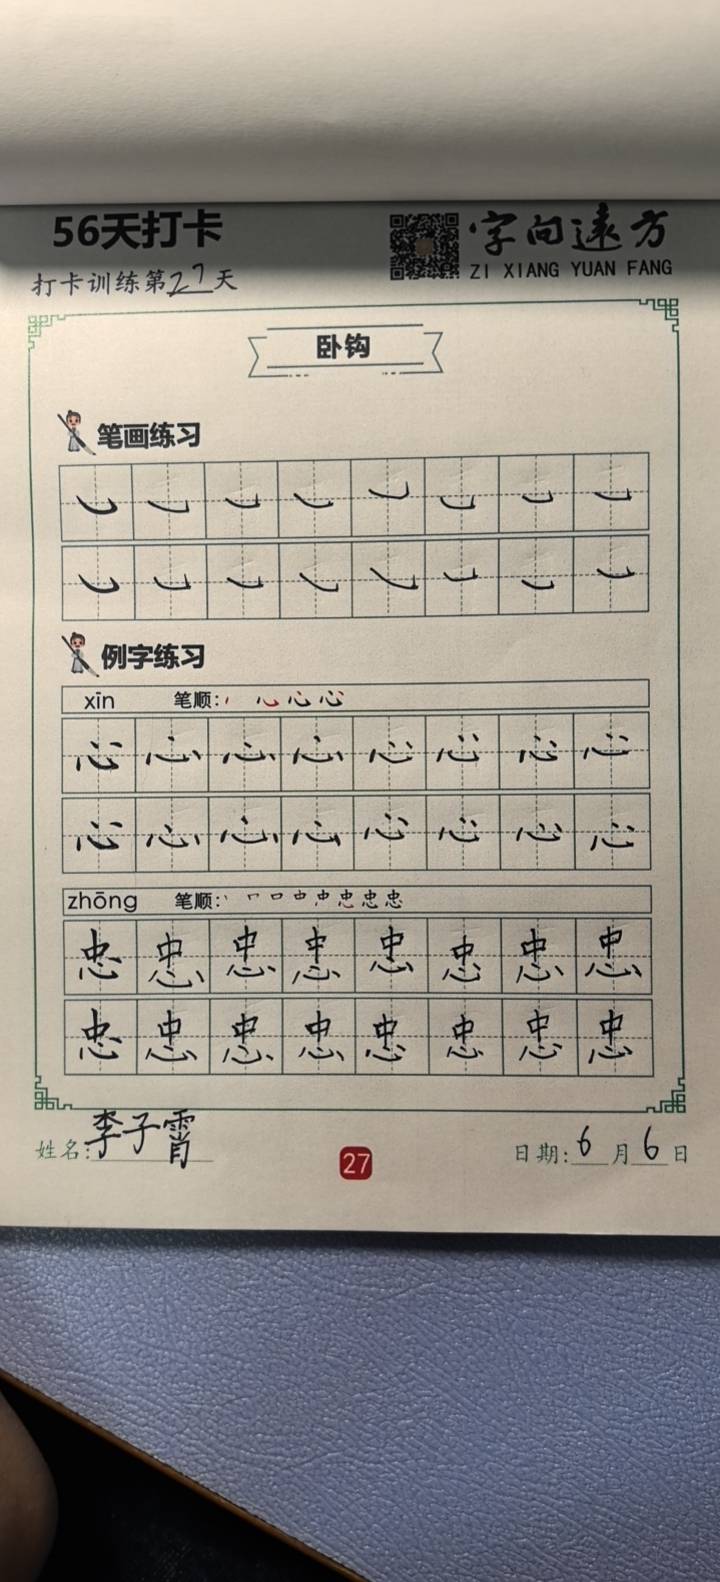 56天打卡
字向远方
ZI XIANG YUAN FANG
打卡训练第27天
卧钩
笔画练习
例字练习
xīn 笔顺:
心心心心心心心心
心心心心心心心心
zhōng 笔顺:
忠忠忠忠忠忠忠忠
忠忠忠忠忠忠忠忠
姓名:李子霄
27
日期:6月6日